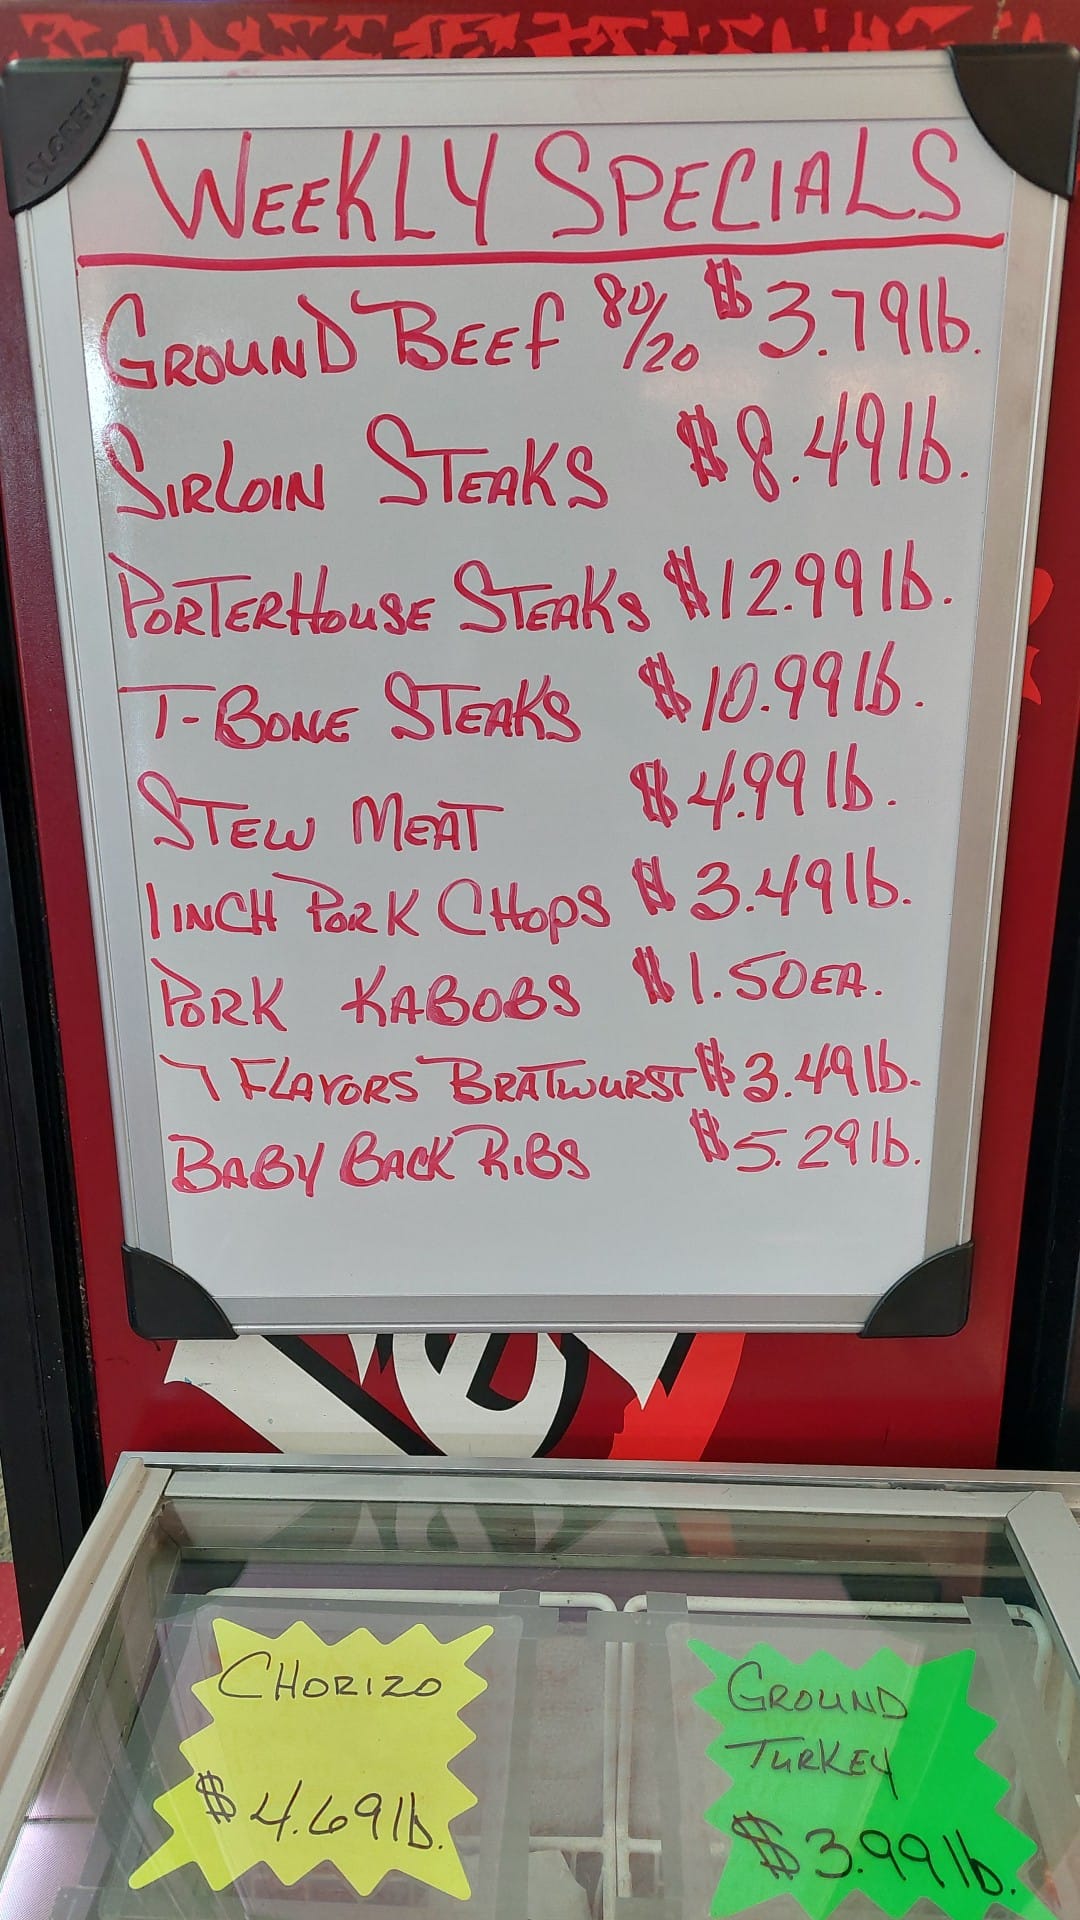 WEEKLY SPECIALS
GROUND BEEF 80/20 $3.79 lb.
SIRLOIN STEAKS $8.49 lb.
PORTERHOUSE STEAKS $12.99 lb.
T-BONE STEAKS $10.99 lb.
STEW MEAT $4.99 lb.
1 INCH PORK CHOPS $3.49 lb.
PORK KABOBS $1.50 EA.
7 FLAVORS BRATWURST $3.49 lb.
BABY BACK RIBS $5.29 lb.
CHORIZO
$4.69 lb.
GROUND
TURKEY
$3.99 lb.